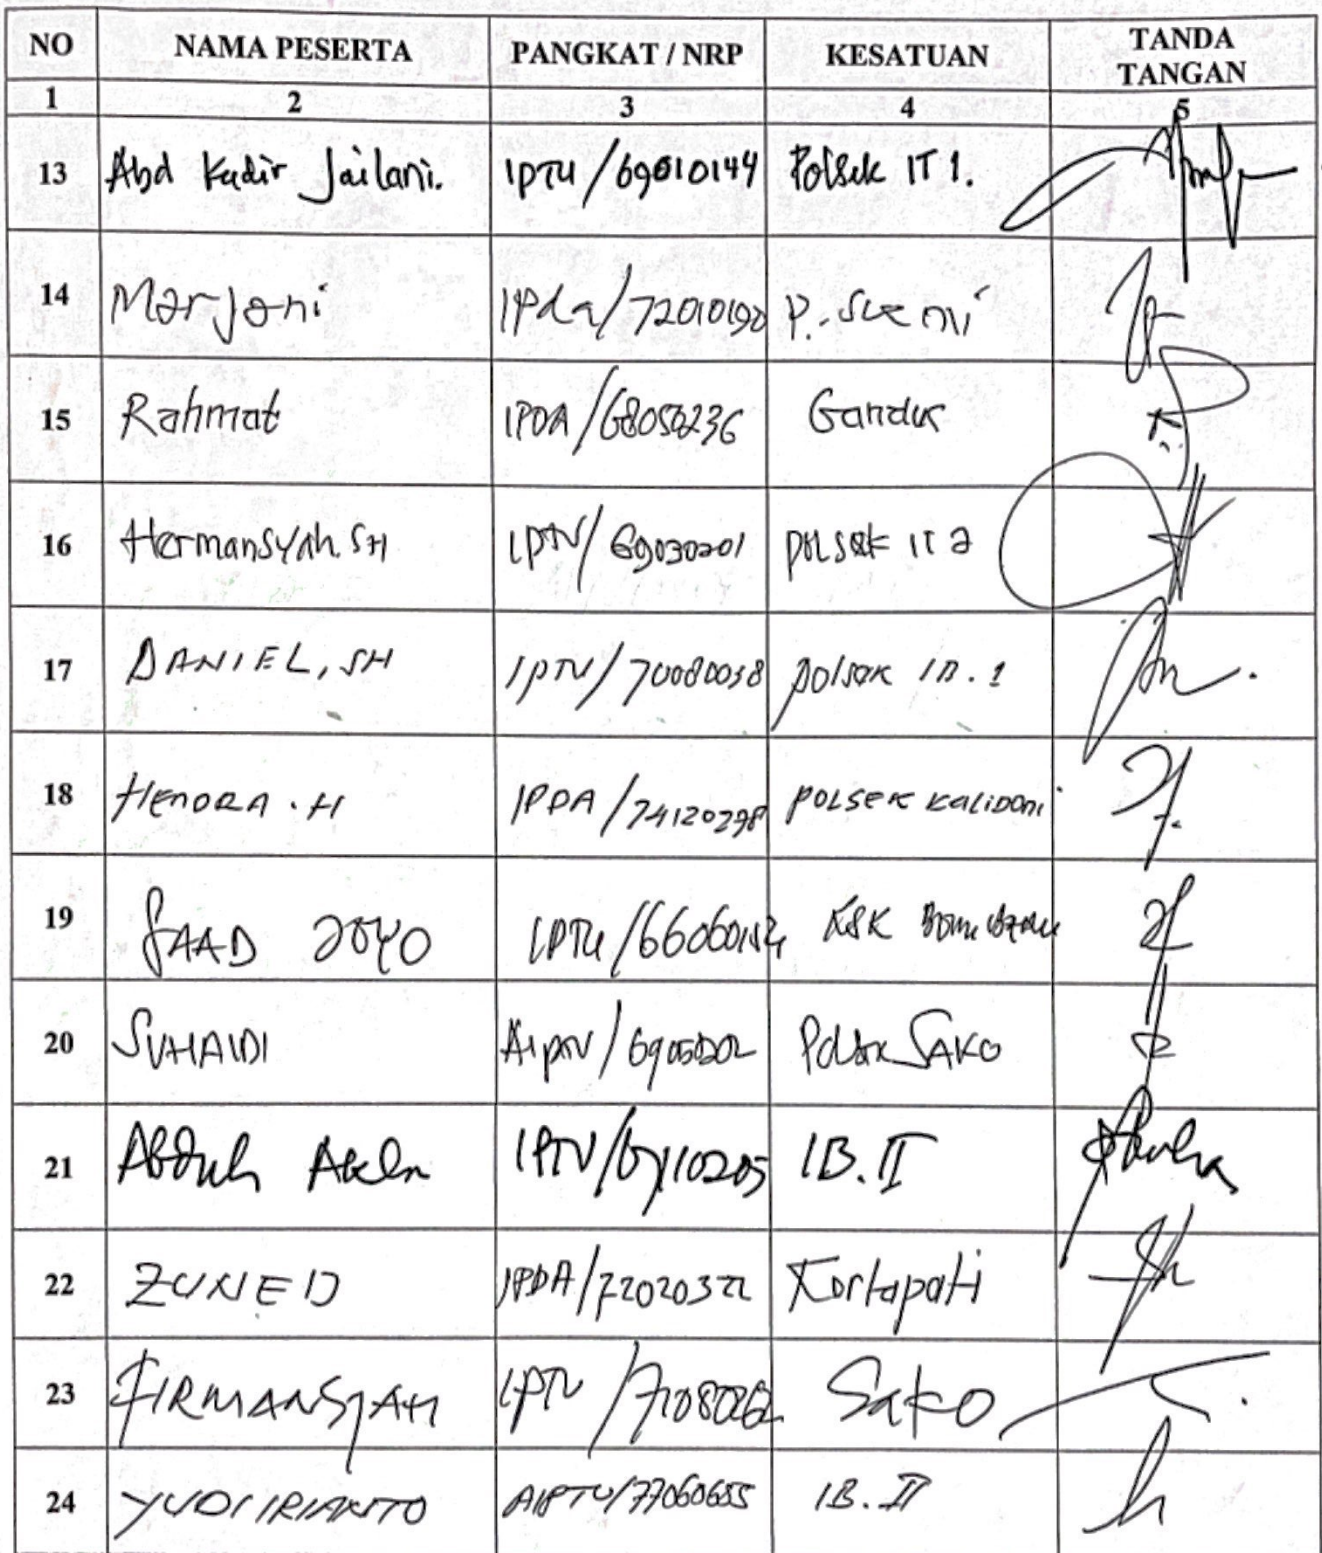 NO NAMA PESERTA PANGKAT / NRP KESATUAN TANDA TANGAN
1 2 3 4 5
13 Abd Kadir Jailani. IPTU /69010144 Polsek IT 1.
14 Marjani IPda/72010190 P. Sukemi
15 Rahmat IPDA /68050236 Gandus
16 Hermansyah. SH IPTU/ 69030201 POLSEK IT 2
17 DANIEL, SH IPTU/70080038 polsek IB. 1
18 HENDRA . H IPDA /74120298 POLSEK KALIDONI
19 SAAD JOYO IPTU /
20 SUHAIDI AIPTU / Polsek SAKO
21 IPTU/ IB. II
22 ZUNED IPDA /72020322 Kertapati
23 FIRMANSYAH IPTU /71080262 Sako
24 YUDI IRIANTO AIPTU/77060655 IB. II